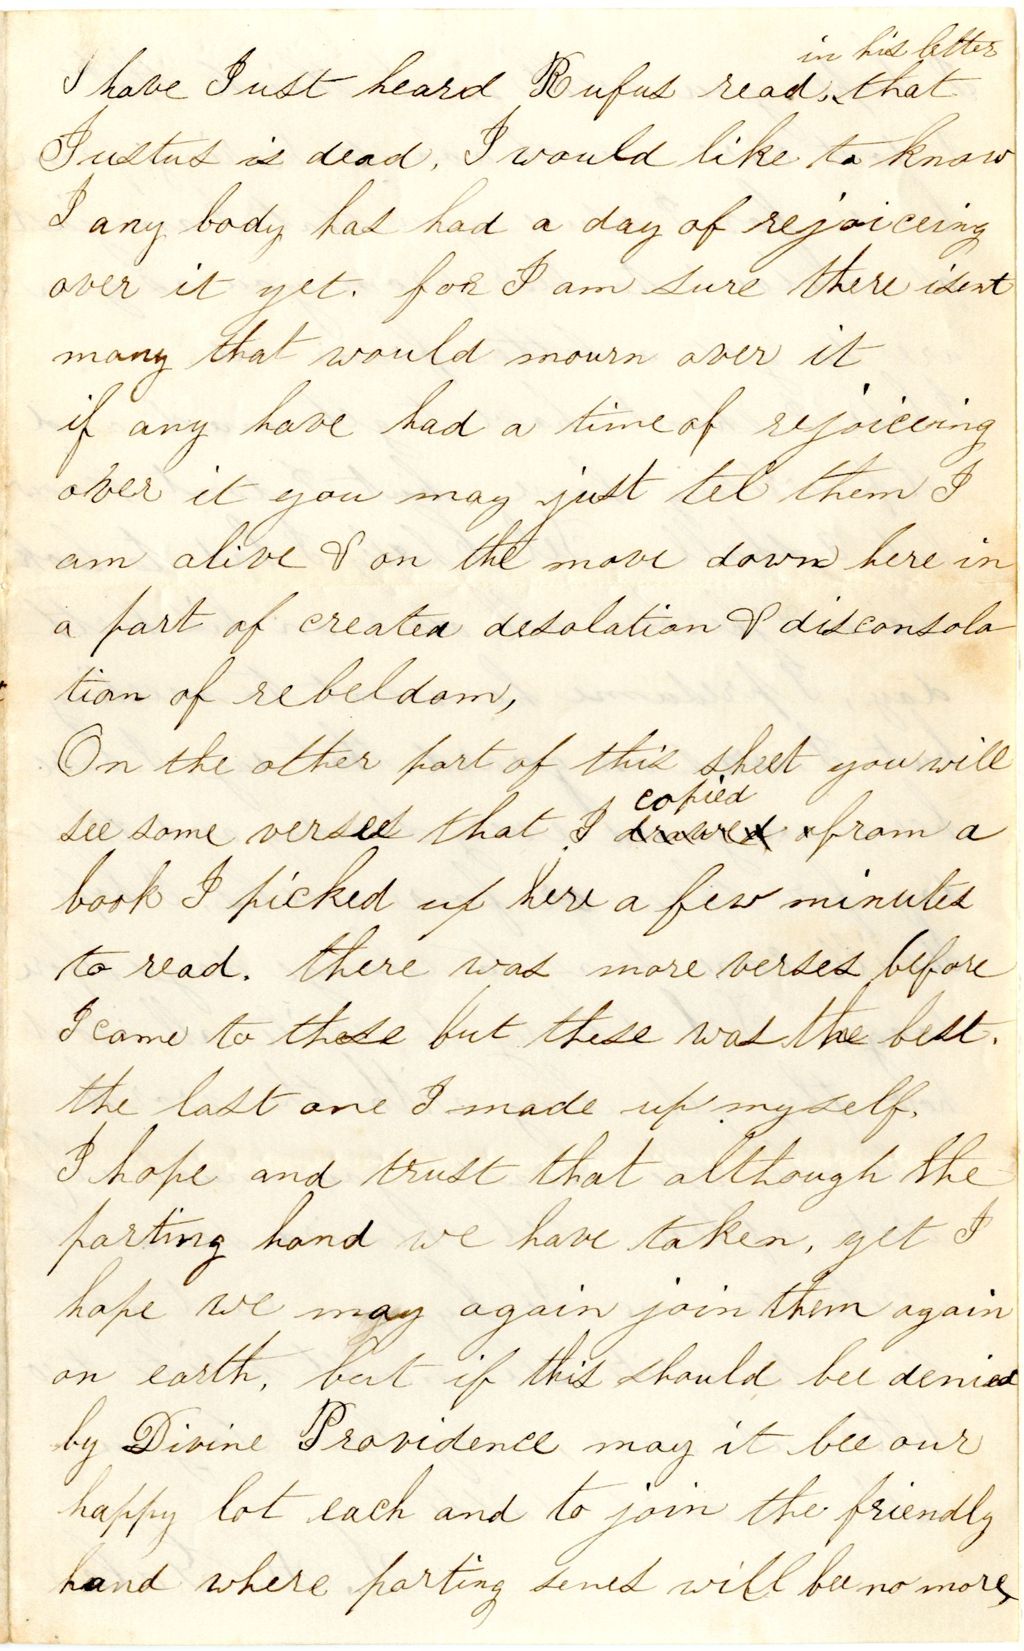 in his letter
I have Just heard Rufus read, that
Justus is dead, I would like to know
I any body has had a day of rejoiceing
over it yet. for I am sure there isent
many that would mourn over it
if any have had a time of rejoiceing
over it you may just tel them I
am alive & on the move down here in
a part of created desolation & disconsola
tion of rebeldom,
On the other part of this sheet you will
copied
see some verses that I drawed from a
book I picked up here a few minutes
to read. there was more verses before
I came to these but these was the best.
the last one I made up myself.
I hope and trust that although the
parting hand we have taken, yet I
hope we may again join them again
on earth, but if this should bee denied
by Divine Providence may it bee our
happy lot each and to join the friendly
hand where parting senes will bee no more,